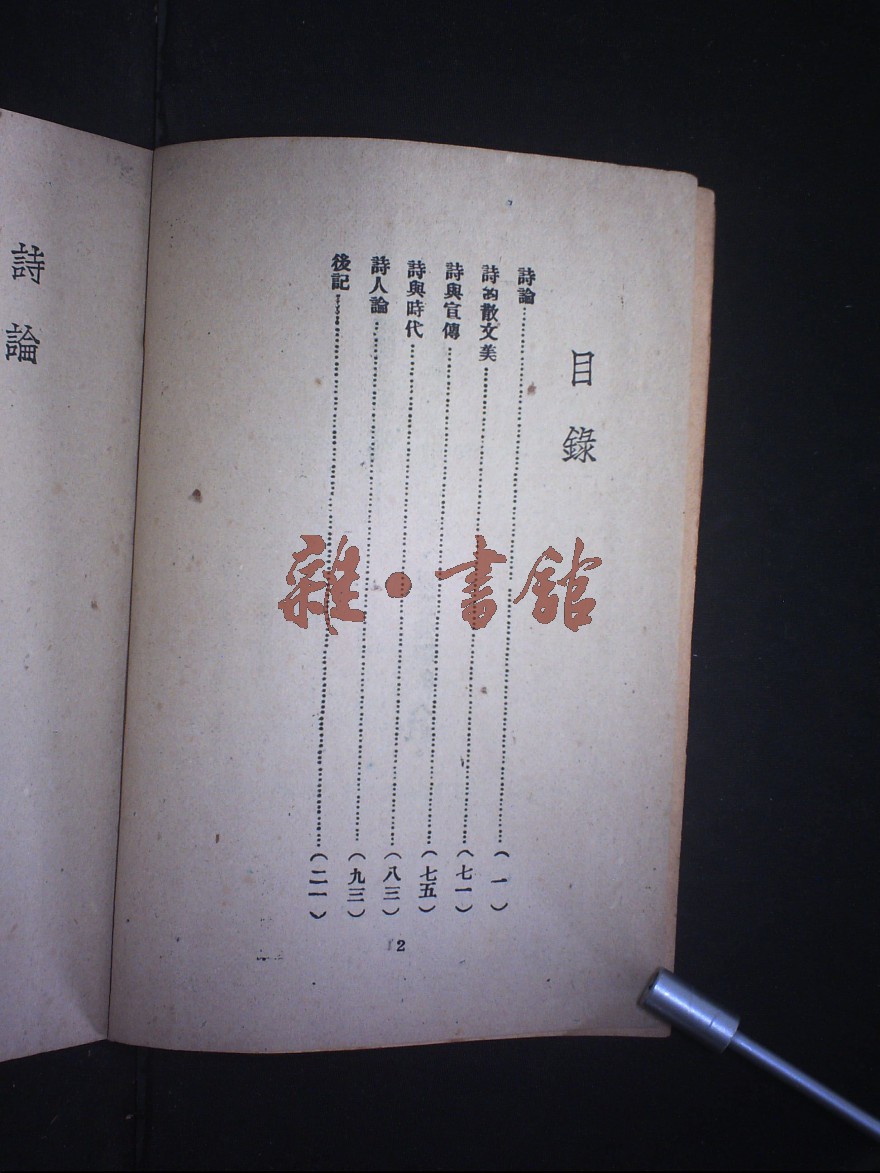 目錄
詩論……(一)
詩的散文美……(七一)
詩與宣傳……(七五)
詩與時代……(八三)
詩人論……(九三)
後記……(二一)
2
詩論
雜·書館